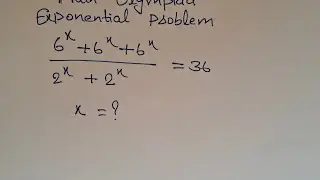 Math Olympiad
Exponential Problem
6^x + 6^x + 6^x / 2^x + 2^x = 36
x = ?